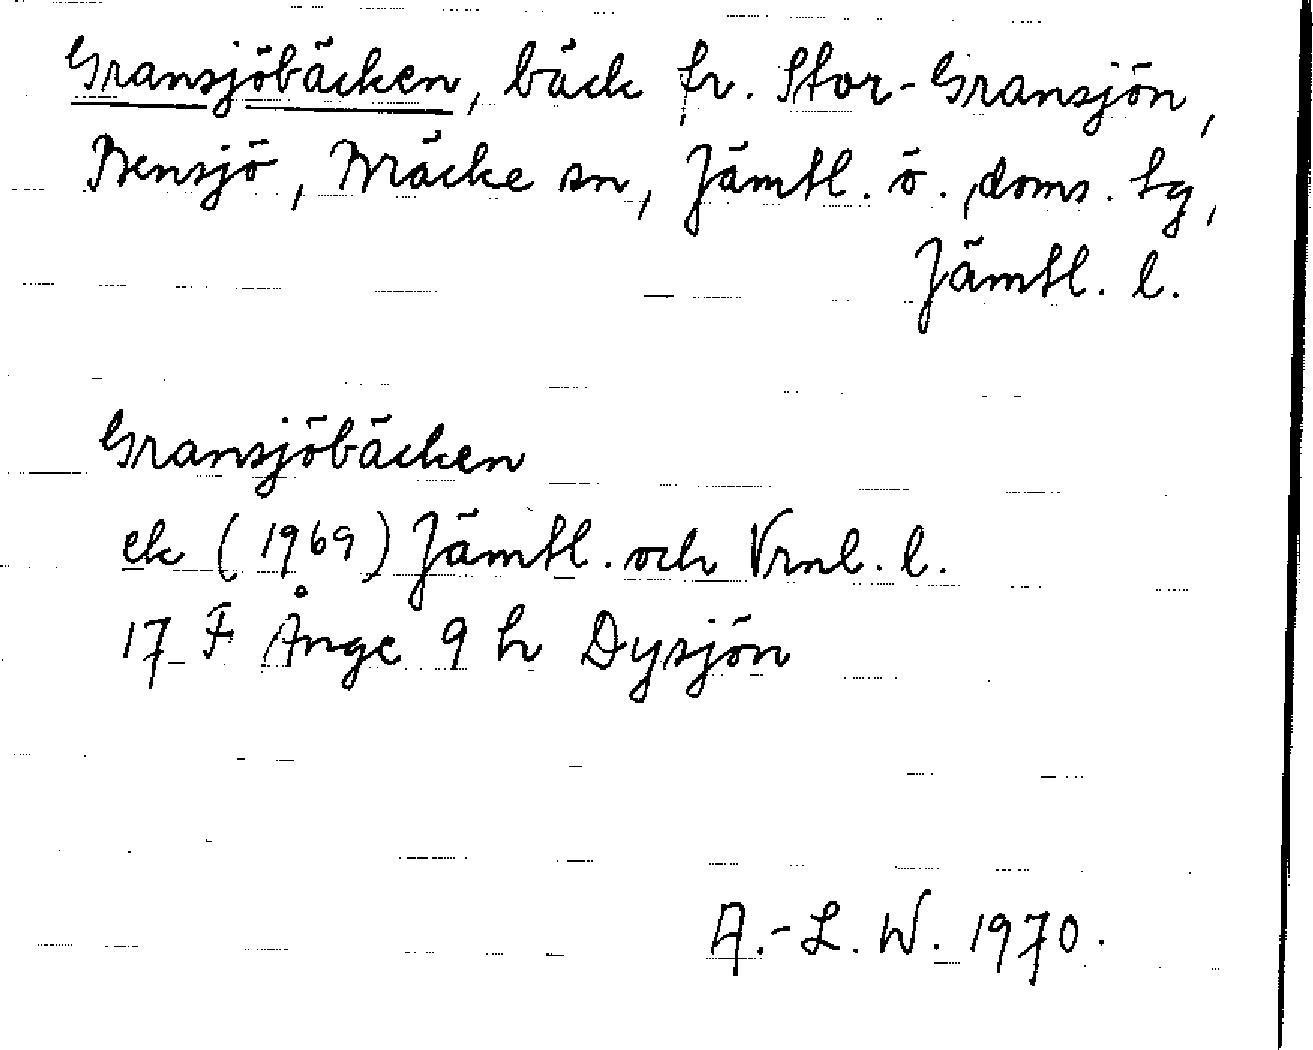 Gransjöbäcken, bäck fr. Stor-Gransjön,
Bensjö, Bräcke sn, Jämtl. ö. doms. tg,
Jämtl. l.
Gransjöbäcken
ek (1969) Jämtl. och Vrnl. l.
17 F Ånge 9 h Dysjön
A.-L. W. 1970.